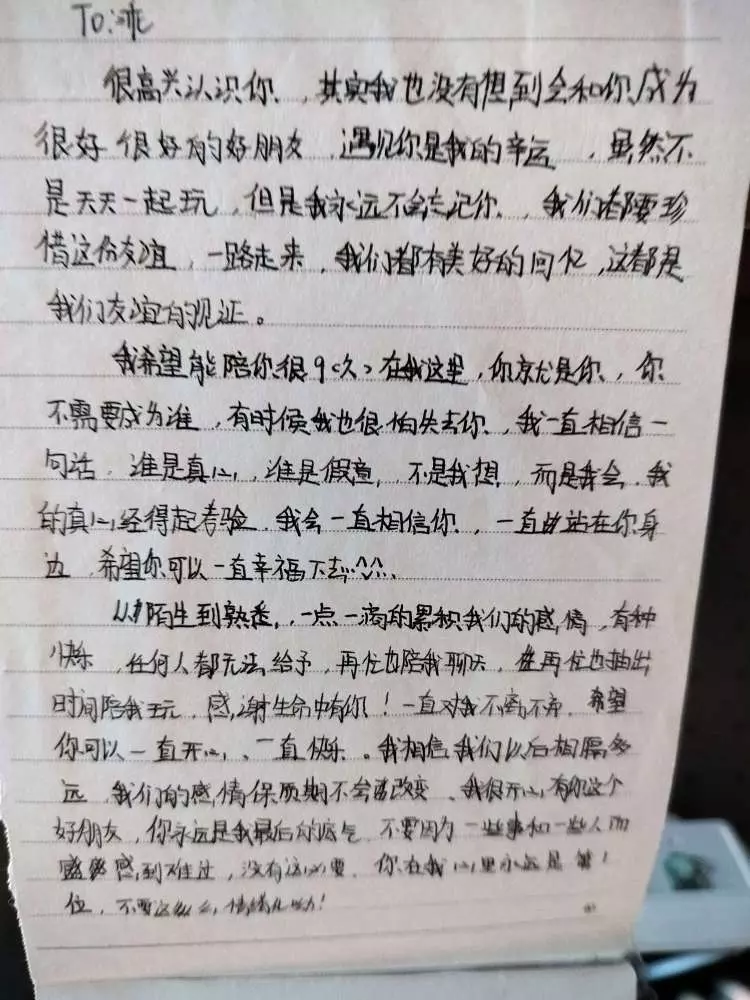 To:
很高兴认识你，其实我也没有想到会和你成为
很好很好的好朋友，遇见你是我的幸运，虽然不
是天天一起玩，但是我永远不会忘记你，我们都要珍
惜这份友谊，一路走来，我们都有美好的回忆，这都是
我们友谊的见证。
我希望能陪你很9<久>在我这里，你就是你，你
不需要成为谁，有时候我也很怕失去你，我一直相信一
句话，谁是真心，谁是假意，不是我想，而是我会，我
的真心经得起考验，我会一直相信你，一直站在你身
边，希望你可以一直幸福下去^^、
从陌生到熟悉，一点一滴的累积我们的感情，有种
快乐，任何人都无法给予，再忙也陪我聊天，再忙也抽出
时间陪我玩，感谢生命中有你！一直对我不离不弃，希望
你可以一直开心、一直快乐。我相信我们以后相隔多
远，我们的感情保质期不会改变、我很开心有你这个
好朋友，你永远是我最后的底气，不要因为一些事和一些人而
感到难过，没有这必要，你在我心里永远是第1
位，不要这么情绪化呦！